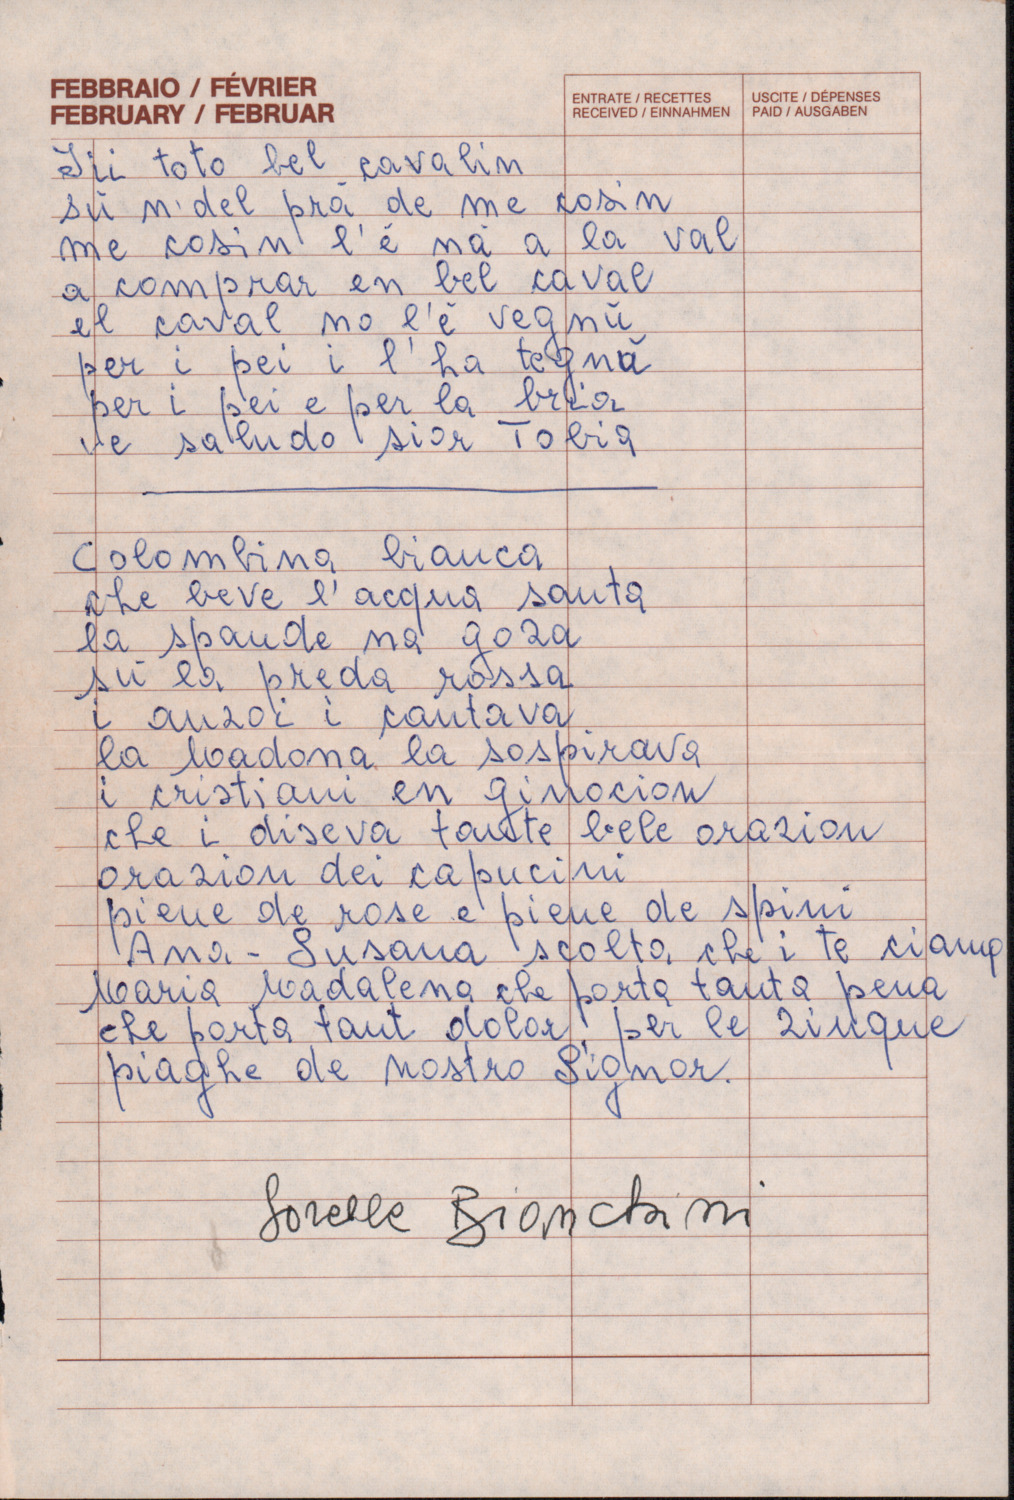 FEBBRAIO / FÉVRIER
FEBRUARY / FEBRUAR
ENTRATE / RECETTES
RECEIVED / EINNAHMEN
USCITE / DÉPENSES
PAID / AUSGABEN
toto bel cavalin
sŭ n'del prà de me cosin
me cosin l'è nà a la val
a comprar en bel caval
el caval no l'è vegnŭ
per i pei i l'ha tegnă
per i pei e per la bria
ve saludo sior Tobia
Colombina bianca
che beve l'acqua santa
la spande na goza
sŭ la preda rossa
i anzoi i cantava
la Madona la sospirava
i cristiani en ginocion
che i diseva tante bele orazion
orazion dei capucini
piene de rose e piene de spini
Ana - Susana scolta che i te ciama
Maria Madalena che porta tanta pena
che porta tant dolor per le zinque
piaghe de nostro Signor.
Sorelle Bianchini